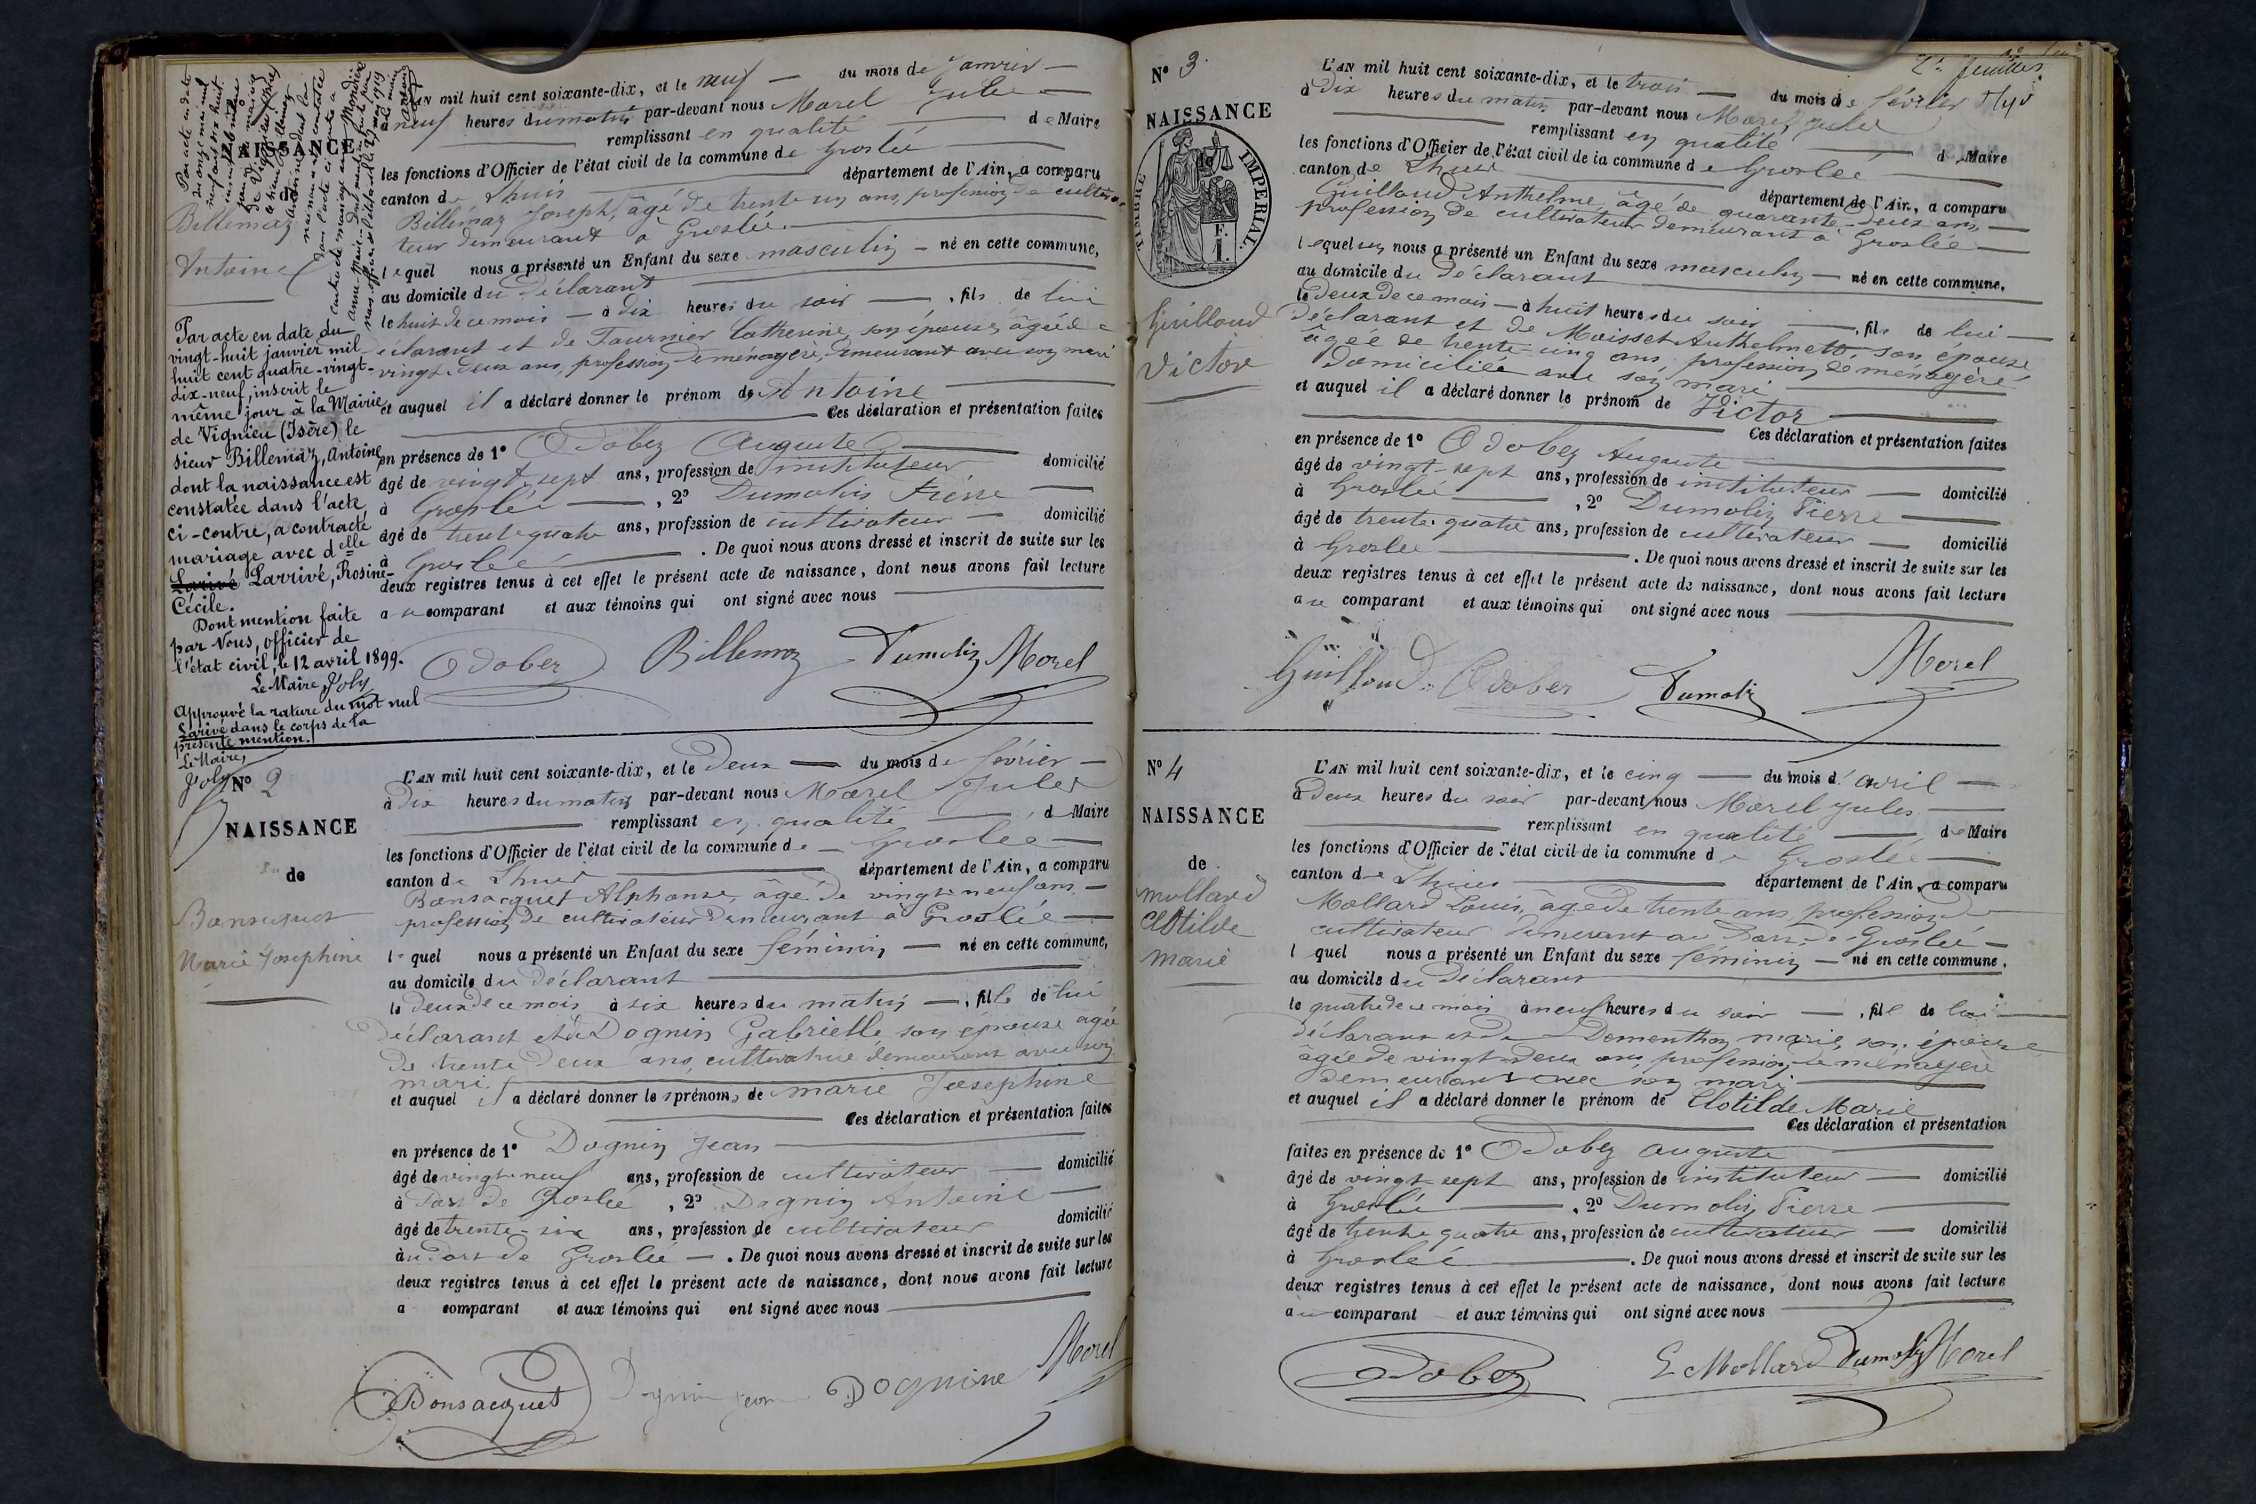 L'AN mil huit cent soixante-dix, et le neuf du mois de Janvier
à neuf heures du matin par-devant nous Morel Jules
remplissant en qualité de Maire
les fonctions d'Officier de l'état civil de la commune de Groslée
canton de Lhuis département de l'Ain, a comparu
Billemaz Joseph, âgé de trente un ans, profession de cultiva
teur demeurant à Groslée
lequel nous a présenté un Enfant du sexe masculin né en cette commune,
au domicile du déclarant
le huit de ce mois à dix heures du soir, fils de lui
déclarant et de Fournier Catherine, son épouse, âgée de
vingt-deux ans, profession de ménagère, demeurant avec son mari
et auquel il a déclaré donner le prénom de Antoine
Ces déclaration et présentation faites
en présence de 1° Odobez Auguste
âgé de vingt-sept ans, profession de instituteur domicilié
à Groslée, 2° Dumolin Pierre
âgé de trente quatre ans, profession de cultivateur domicilié
à Groslée. De quoi nous avons dressé et inscrit de suite sur les
deux registres tenus à cet effet le présent acte de naissance, dont nous avons fait lecture
au comparant et aux témoins qui ont signé avec nous
Odobez Billemaz Dumolin Morel
NAISSANCE
de
Billemaz
Antoine
Par acte en date du
vingt-huit janvier mil
huit cent quatre-vingt-
dix-neuf, inscrit le
même jour à la Mairie
de Vignieu (Isère) le
sieur Billemaz, Antoine
dont la naissance est
constatée dans l'acte
ci-contre, a contracté
mariage avec delle
Larivé Larrivé, Rosine-
Cécile.
Dont mention faite
par Nous, officier de
l'état civil, le 12 avril 1899.
Le Maire, Joly
Approuvé la rature du mot nul
Larivé dans le corps de la
présente mention.
Le Maire,
Joly
N° 2
NAISSANCE
de
Bonsacquet
Marie Josephine
L'AN mil huit cent soixante-dix, et le deux du mois de février
à dix heures du matin par-devant nous Morel Jules
remplissant en qualité de Maire
les fonctions d'Officier de l'état civil de la commune de Groslée
canton de Lhuis département de l'Ain, a comparu
Bonsacquet Alphonse, âgé de vingt-neuf ans,
profession de cultivateur demeurant à Groslée
lequel nous a présenté un Enfant du sexe féminin né en cette commune,
au domicile du déclarant
le deux de ce mois à six heures du matin, fille de lui
déclarant et de Dognin Gabrielle son épouse âgée
de trente deux ans, cultivatrice demeurant avec son
mari
et auquel il a déclaré donner les prénoms de marie Josephine
Ces déclaration et présentation faites
en présence de 1° Dognin Jean
âgé de vingt-neuf ans, profession de cultivateur domicilié
à Port de Groslée, 2° Dognin Antoine
âgé de trente-six ans, profession de cultivateur domicilié
à Port de Groslée. De quoi nous avons dressé et inscrit de suite sur les
deux registres tenus à cet effet le présent acte de naissance, dont nous avons fait lecture
a comparant et aux témoins qui ont signé avec nous
Bonsacquet Dognin Jean Dognine Morel
2e feuillet
N° 3
NAISSANCE
TIMBRE IMPERIAL.
F.
1.
Guilloud
Victor
L'AN mil huit cent soixante-dix, et le trois du mois de février
à Dix heures du matin par-devant nous Morel Jules
remplissant en qualité de Maire
les fonctions d'Officier de l'état civil de la commune de Groslée
canton de Lhuis département de l'Ain, a comparu
Guilloud Anthelme, âgé de quarante-deux ans,
profession de cultivateur demeurant à Groslée
lequel nous a présenté un Enfant du sexe masculin né en cette commune,
au domicile du déclarant
le deux de ce mois à huit heures du soir, fils de lui
déclarant et de Moisset Anthelmette son épouse
âgée de trente-cinq ans, profession de ménagère
domiciliée avec son mari
et auquel il a déclaré donner le prénom de Victor
Ces déclaration et présentation faites
en présence de 1° Odobez Auguste
âgé de vingt-sept ans, profession de instituteur domicilié
à Groslée, 2° Dumolin Pierre
âgé de trente-quatre ans, profession de cultivateur domicilié
à Groslée. De quoi nous avons dressé et inscrit de suite sur les
deux registres tenus à cet effet le présent acte de naissance, dont nous avons fait lecture
au comparant et aux témoins qui ont signé avec nous
Guilloud Odobez Dumolin Morel
N° 4
NAISSANCE
de
mollard
Clotilde
marie
L'AN mil huit cent soixante-dix, et le cinq du mois d'avril
à deux heures du soir par-devant nous Morel Jules
remplissant en qualité de Maire
les fonctions d'Officier de l'état civil de la commune de Groslée
canton de Lhuis département de l'Ain, a comparu
Mollard Louis, âgé de trente ans, profession de
cultivateur demeurant au Port de Groslée
lequel nous a présenté un Enfant du sexe féminin né en cette commune,
au domicile du déclarant
le quatre de ce mois à neuf heures du soir, fille de lui
déclarant et de Dementhon marie, son épouse
âgée de vingt-deux ans, profession de ménagère
demeurant avec son mari
et auquel il a déclaré donner le prénom de Clotilde Marie
Ces déclaration et présentation
faites en présence de 1° Odobez Auguste
âgé de vingt-sept ans, profession de instituteur domicilié
à Groslée, 2° Dumolin Pierre
âgé de trente quatre ans, profession de cultivateur domicilié
à Groslée. De quoi nous avons dressé et inscrit de suite sur les
deux registres tenus à cet effet le présent acte de naissance, dont nous avons fait lecture
au comparant et aux témoins qui ont signé avec nous
Odobez L Mollard Dumolin Morel